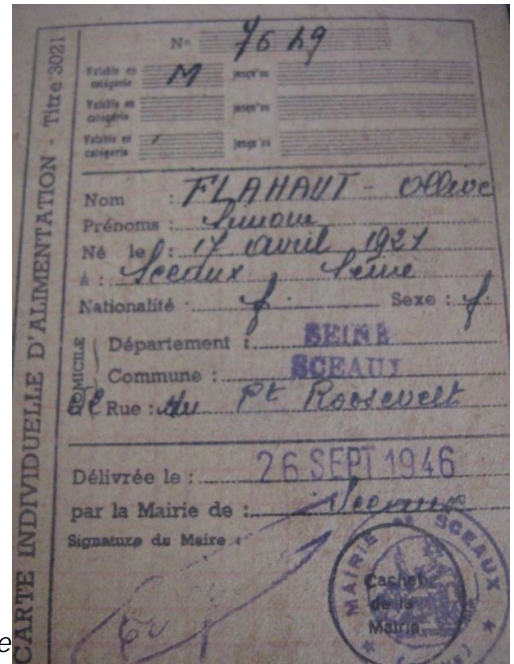 CARTE INDIVIDUELLE D'ALIMENTATION - Titre 3021
No 7649
Valable en catégorie M jusqu'au
Valable en catégorie jusqu'au
Valable en catégorie jusqu'au
Nom : FLAHAUT - Ollive
Prénoms : Simone
Né le : 17 avril 1921
à : Sceaux Seine
Nationalité f. Sexe : f.
DOMICILE
Département : SEINE
Commune : SCEAUX
Rue : du Pt Roosevelt
Délivrée le : 26 SEPT 1946
par la Mairie de : Sceaux
Signature du Maire :
Cachet
de la
Mairie
MAIRIE DE SCEAUX
e